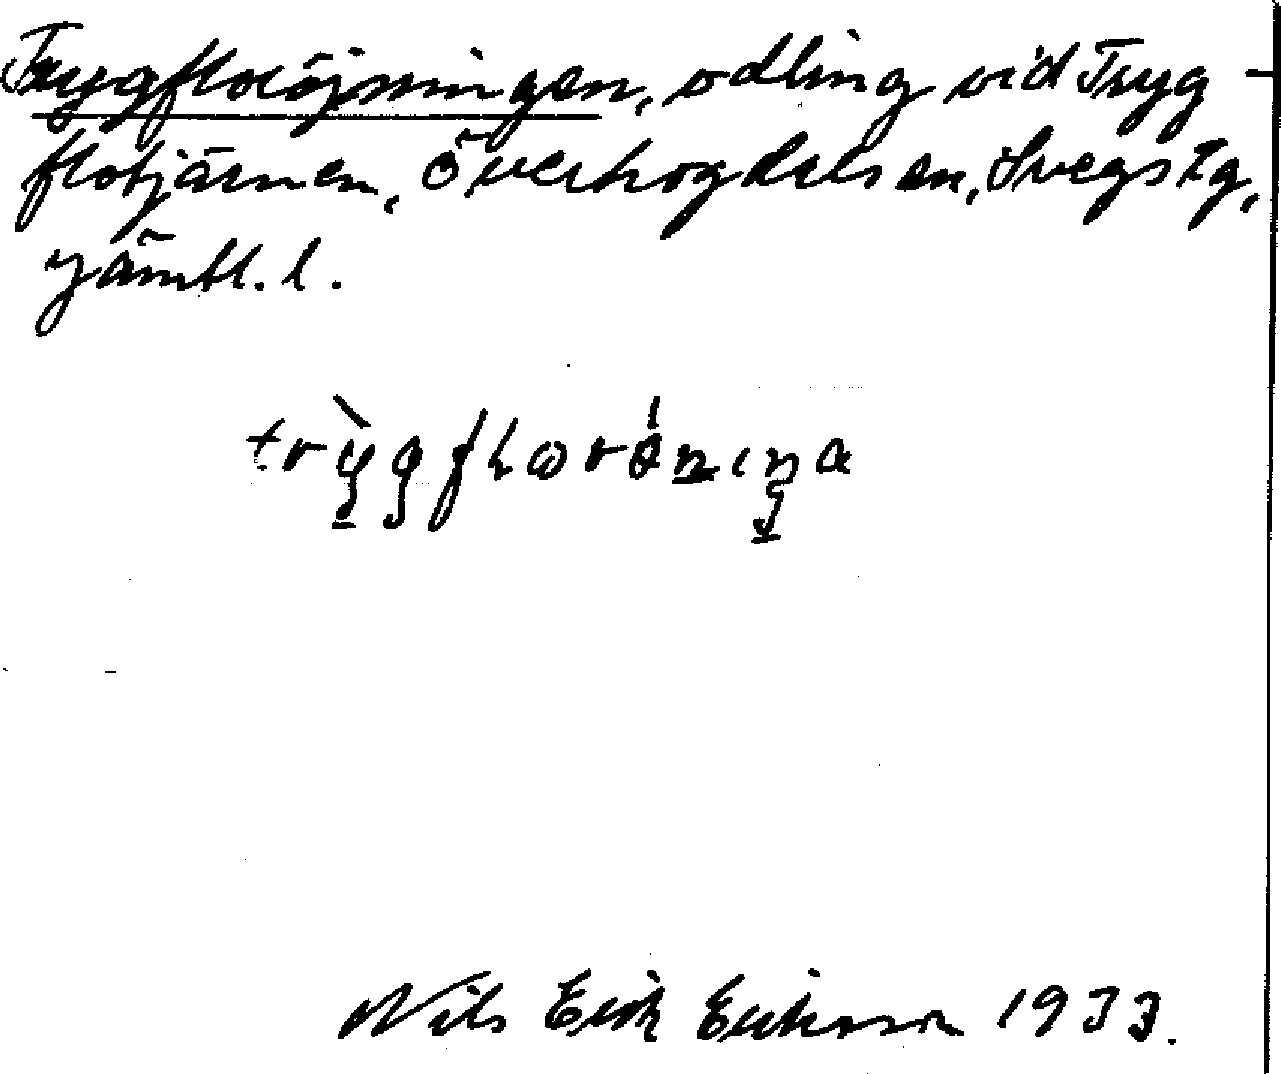 Trygfloröjsningen, odling vid Tryg-
flotjärnen, Överhogdals sn, Svegs tg,
Jämtl. l.
trỳgfloŕøninga
Nils Erik Eriksson 1933.